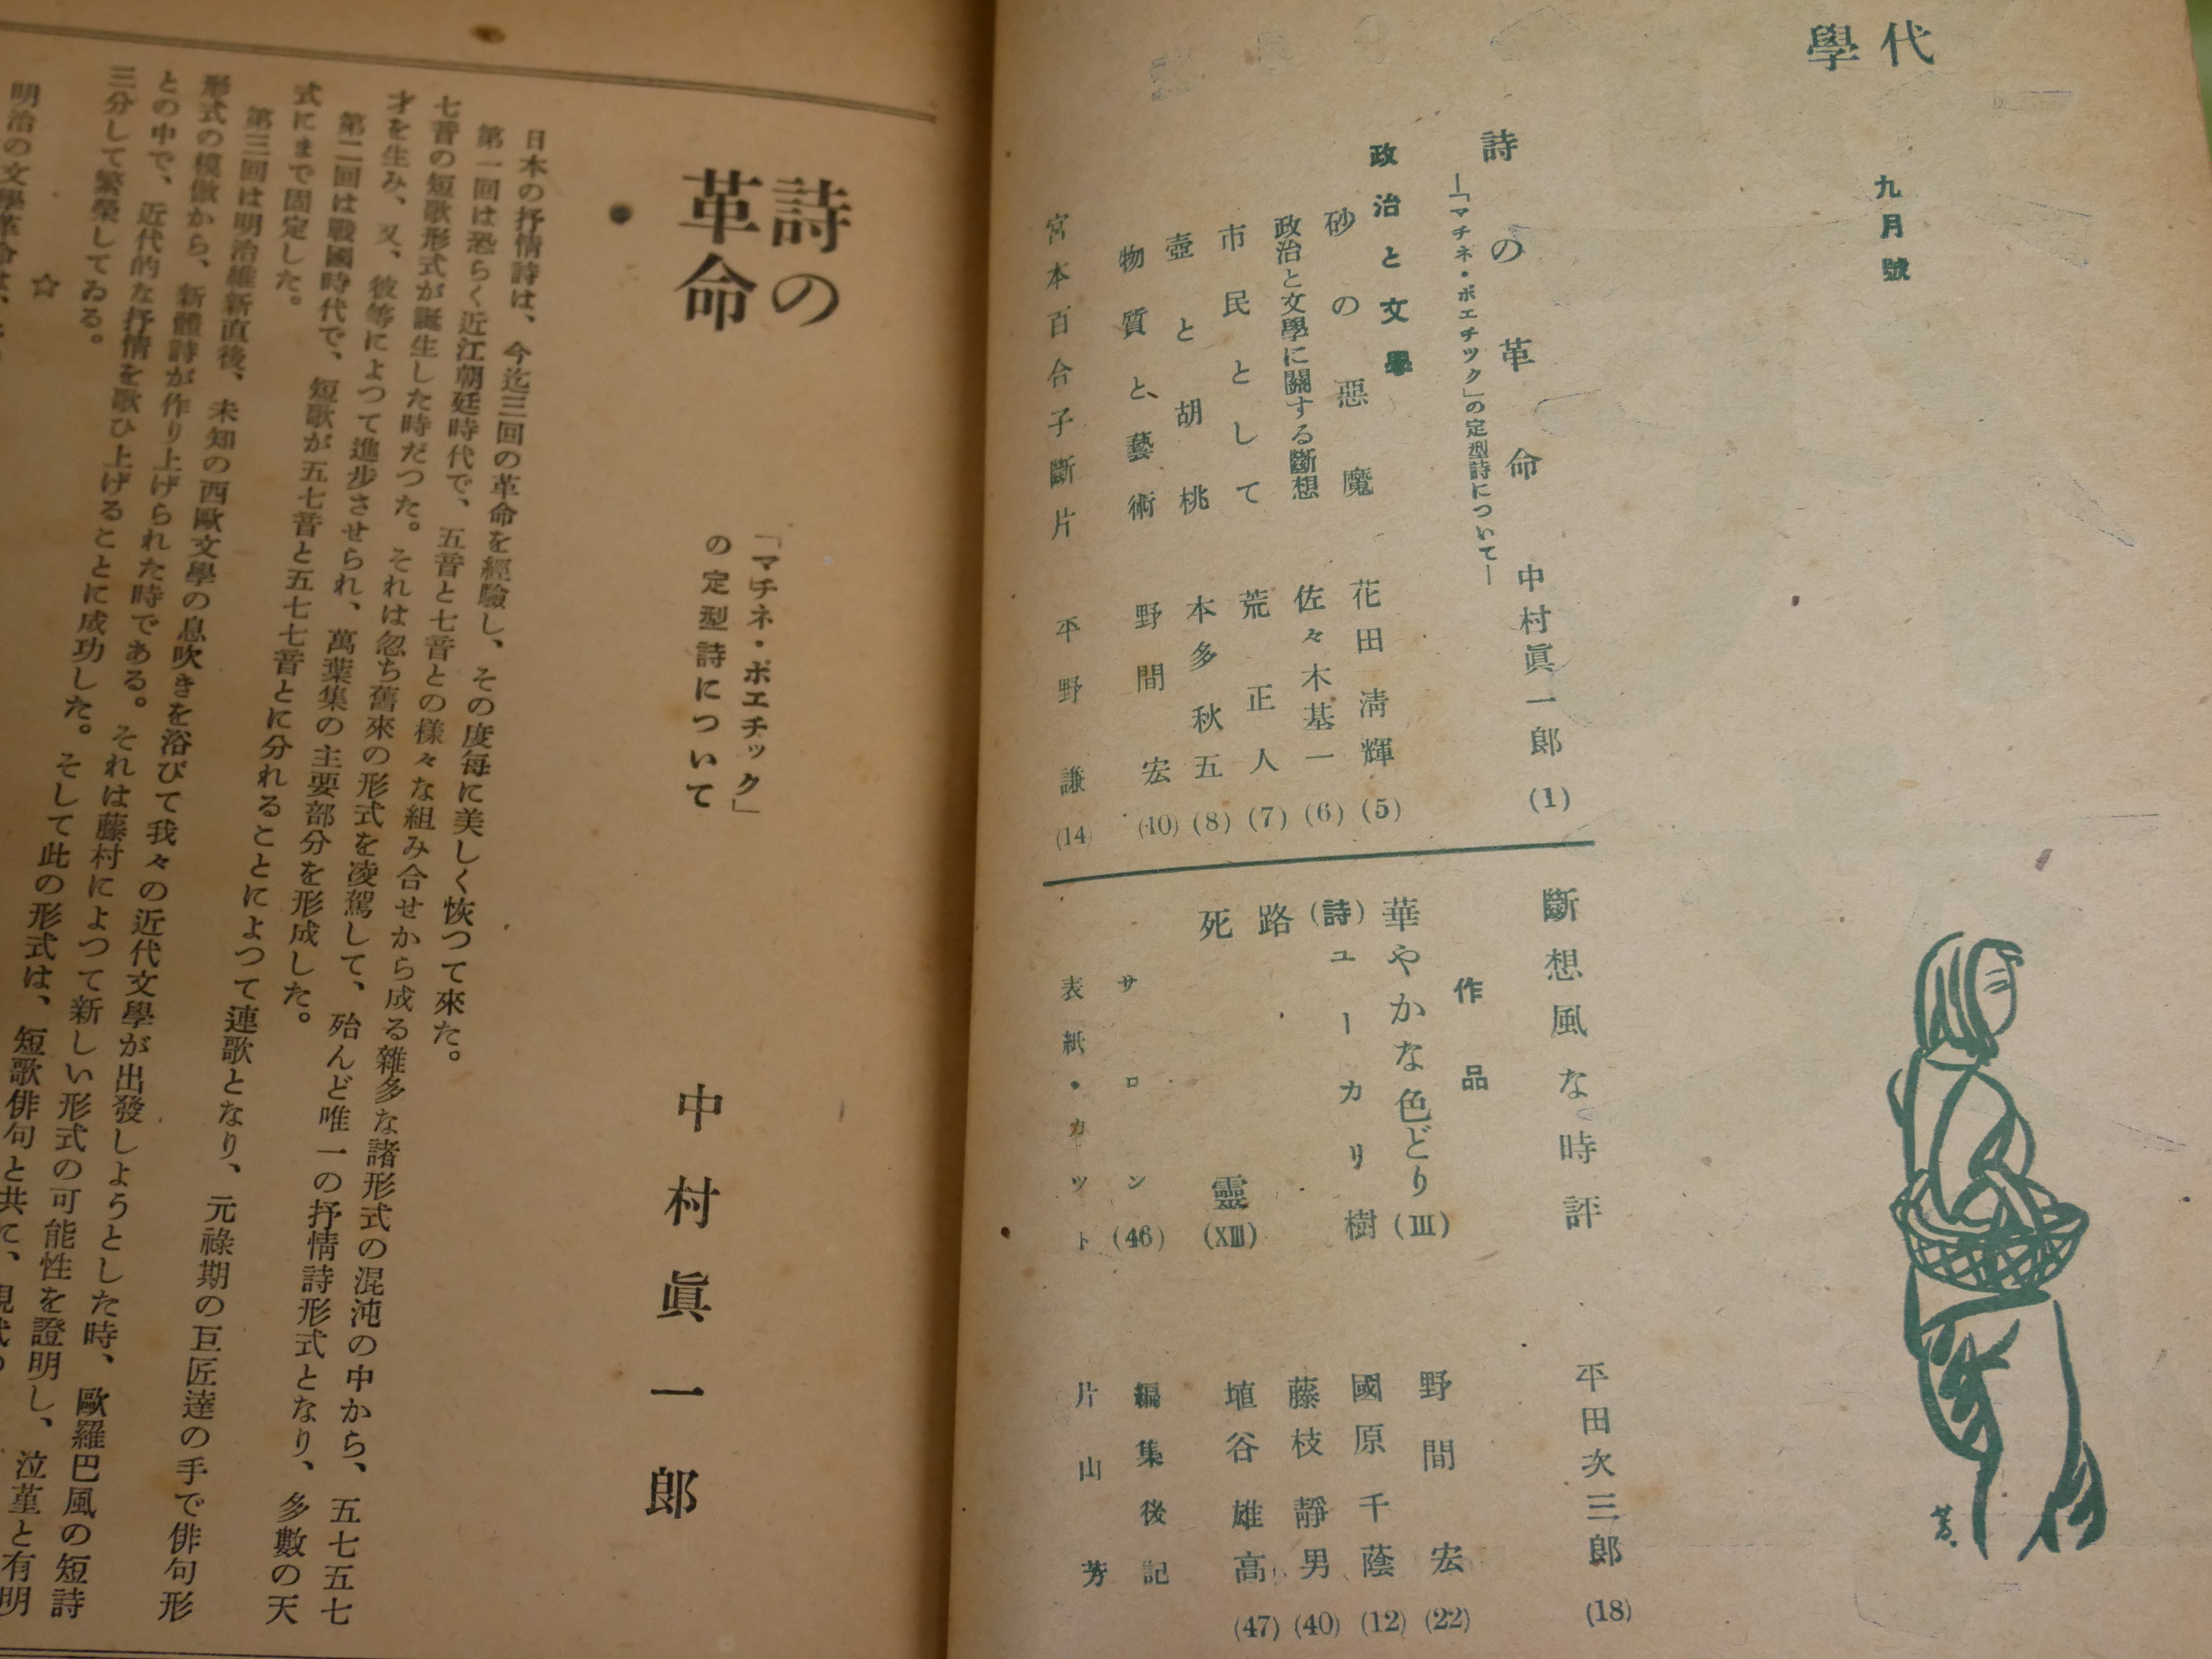 代
學
九月號
詩の革命 中村眞一郎 (1)
―「マチネ・ポエチック」の定型詩について―
政治と文學
砂の惡魔 花田淸輝 (5)
政治と文學に關する斷想 佐々木基一 (6)
市民として 荒正人 (7)
壺と胡桃 本多秋五 (8)
物質と藝術 野間宏 (10)
宮本百合子斷片 平野謙 (14)
斷想風な時評 平田次三郎 (18)
作品
華やかな色どり(Ⅲ) 野間宏 (22)
(詩)ユーカリ樹 國原千蔭 (12)
路 藤枝靜男 (40)
死靈(XIII) 埴谷雄高 (47)
サロン(46) 編集後記
表紙・カット 片山芳
芳
詩の
革命
「マチネ・ポエチック」
の定型詩について
中村眞一郎
日本の抒情詩は、今迄三回の革命を經驗し、その度每に美しく恢つて來た。
第一回は恐らく近江朝廷時代で、五音と七音との樣々な組み合せから成る雜多な諸形式の混沌の中から、五七五七
七音の短歌形式が誕生した時だつた。それは忽ち舊來の形式を凌駕して、殆んど唯一の抒情詩形式となり、多數の天
才を生み、又、彼等によつて進步させられ、萬葉集の主要部分を形成した。
第二回は戰國時代で、短歌が五七五音と五七七音とに分れることによつて連歌となり、元祿期の巨匠達の手で俳句形
式にまで固定した。
第三回は明治維新直後、未知の西歐文學の息吹きを浴びて我々の近代文學が出發しようとした時、歐羅巴風の短詩
形式の模倣から、新體詩が作り上げられた時である。それは藤村によつて新しい形式の可能性を證明し、泣菫と有明
との中で、近代的な抒情を歌ひ上げることに成功した。そして此の形式は、短歌俳句と共に、現代の
三分して繁榮してゐる。
☆
明治の文學革命は、